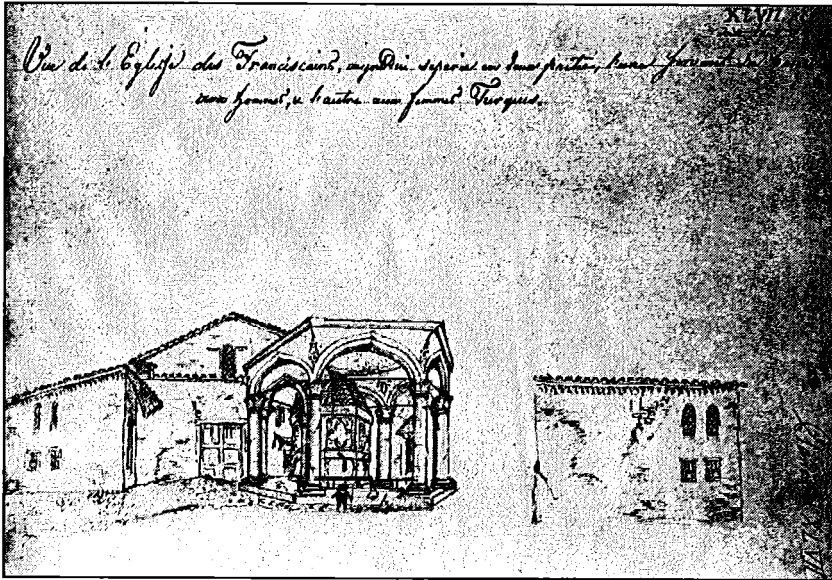 XLVII
Vue de l'Eglise des Franciscains, aujourdui separée en deux parties, l'une servant de
aux hommes, e l'autre aux femmes Turques.